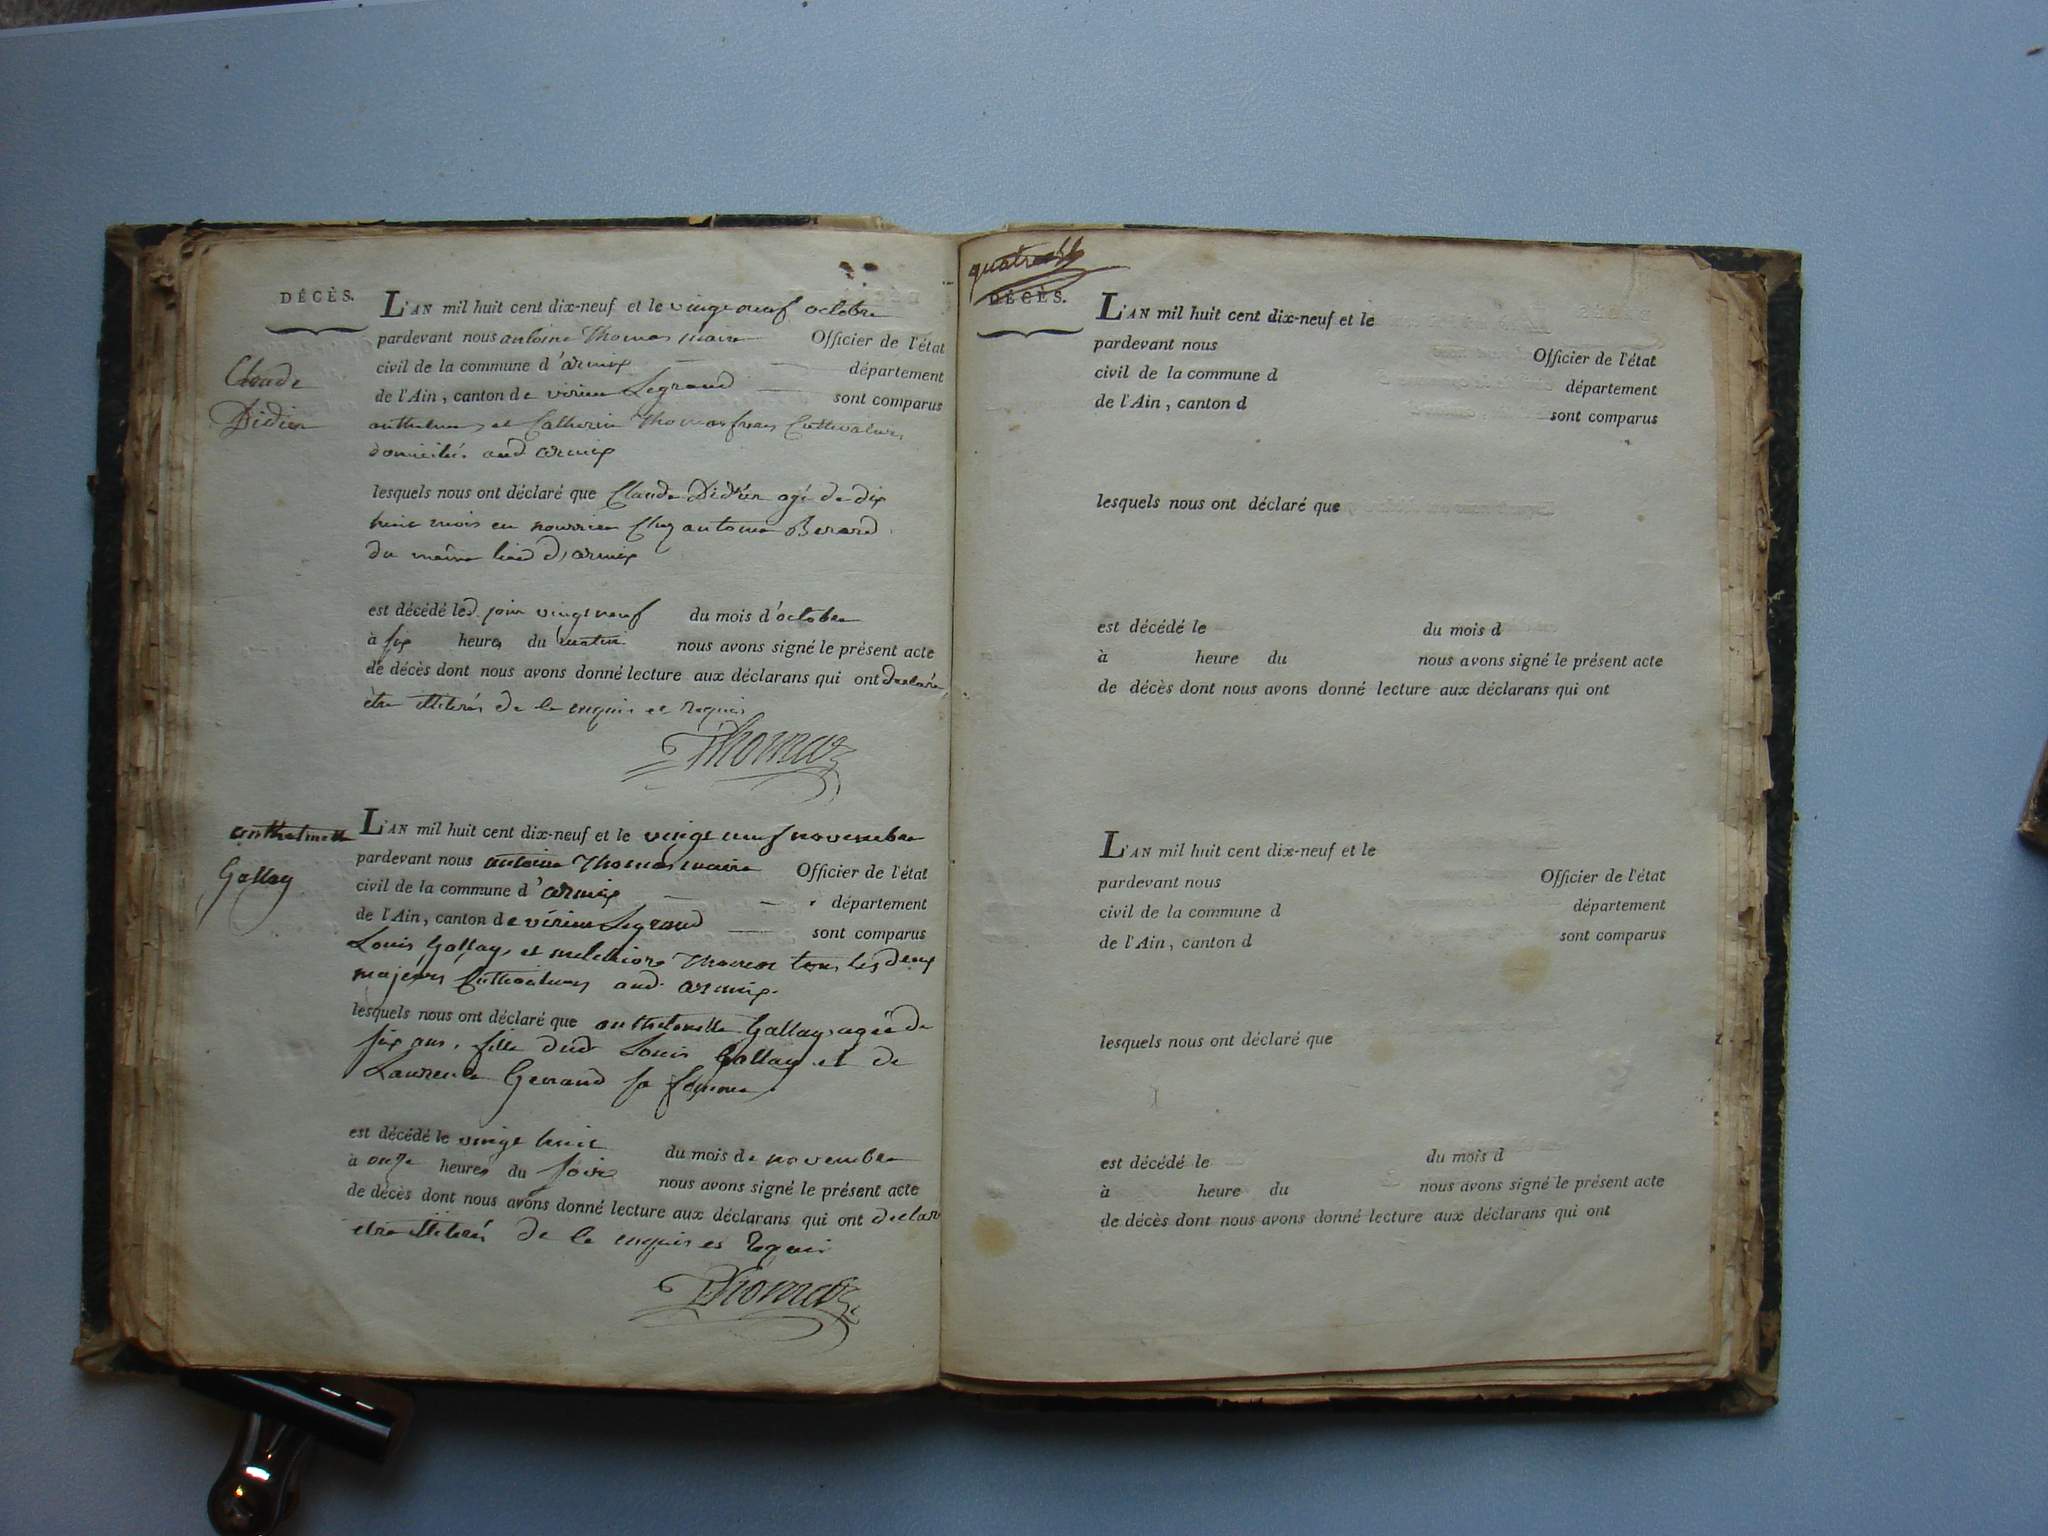 DÉCÈS.
L'AN mil huit cent dix-neuf et le vingt neuf octobre
pardevant nous antoine Thomas maire Officier de l'état
civil de la commune d'armix département
de l'Ain, canton de virieu Legrand sont comparus
Claude
Didier
anthelme et Catherin Thomas freres Cultivateurs
domiciliés aud armix
lesquels nous ont déclaré que Claude Didier agé de dix
huit mois en nourrice Chez antoine Berard
du même lieu d'armix
est décédé led. jour vingt neuf du mois d'octobre
à six heures du matin nous avons signé le présent acte
de décès dont nous avons donné lecture aux déclarans qui ont declarés
être illiterés de ce enquis et requis
Thomas
anthelmette
Gallay
L'AN mil huit cent dix-neuf et le vingt neuf novembre
pardevant nous antoine Thomas maire Officier de l'état
civil de la commune d'armix département
de l'Ain, canton de virieu Legrand sont comparus
Louis Gallay et melchior Thomas tous les deux
majeurs Cultivateurs aud. armix.
lesquels nous ont déclaré que anthelmette Gallay agée de
six ans, fille dud Louis Gallay et de
Laurence Genand sa femme
est décédé le vingt huit du mois de novembre
à onze heures du soir nous avons signé le présent acte
de décès dont nous avons donné lecture aux déclarans qui ont declaré
être illiterés de ce enquis et requis
Thomas
DÉCÈS.
L'AN mil huit cent dix-neuf et le
pardevant nous Officier de l'état
civil de la commune d département
de l'Ain, canton d sont comparus
lesquels nous ont déclaré que
est décédé le du mois d
à heure du nous avons signé le présent acte
de décès dont nous avons donné lecture aux déclarans qui ont
L'AN mil huit cent dix-neuf et le
pardevant nous Officier de l'état
civil de la commune d département
de l'Ain, canton d sont comparus
lesquels nous ont déclaré que
est décédé le du mois d
à heure du nous avons signé le présent acte
de décès dont nous avons donné lecture aux déclarans qui ont